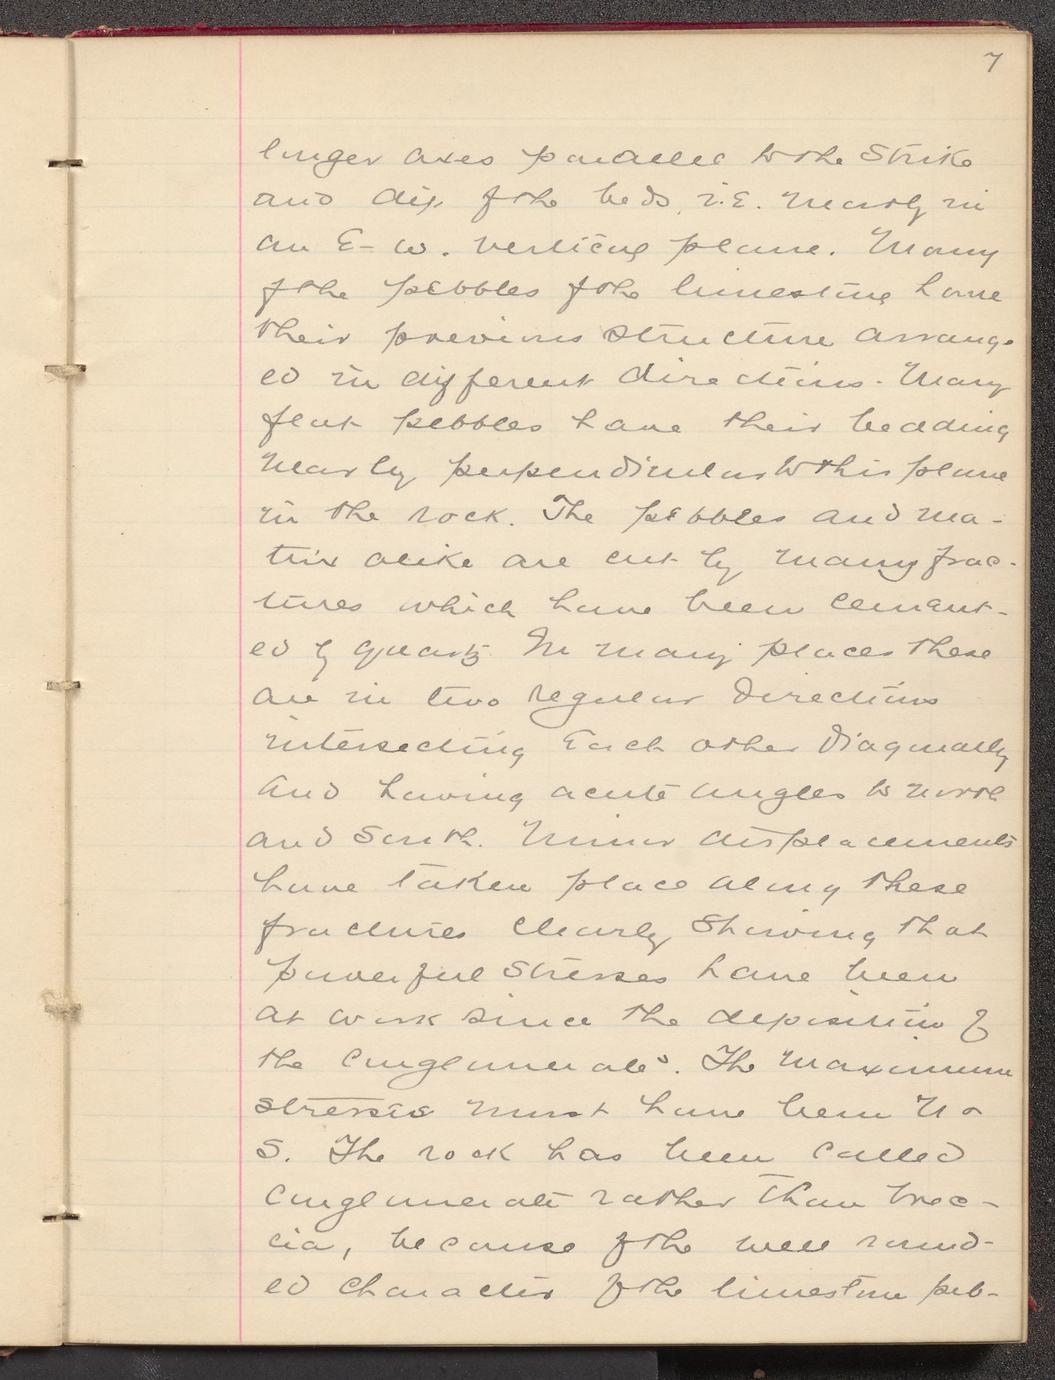 7
longer axes parallel to the Strike
and dip of the beds, i.E. nearly in
an E-W. vertical plane. Many
of the pebbles of the limestone have
their previous structure arrang-
ed in different directions. Many
flat pebbles have their bedding
nearly perpendicular to this plane
in the rock. The pebbles and ma-
trix alike are cut by many frac-
tures which have been cemant-
ed by quartz. In many places these
are in two regular directions
intersecting Each other diagonally
and having acute angles to north
and South. Minor displacements
have taken place along these
fractures clearly showing that
powerful stresses have been
at work since the deposition of
the conglomerate. The maximum
stresses must have been N o
S. The rock has been called
conglomerate rather than brec-
cia, because of the well round-
ed character of the limestone peb-